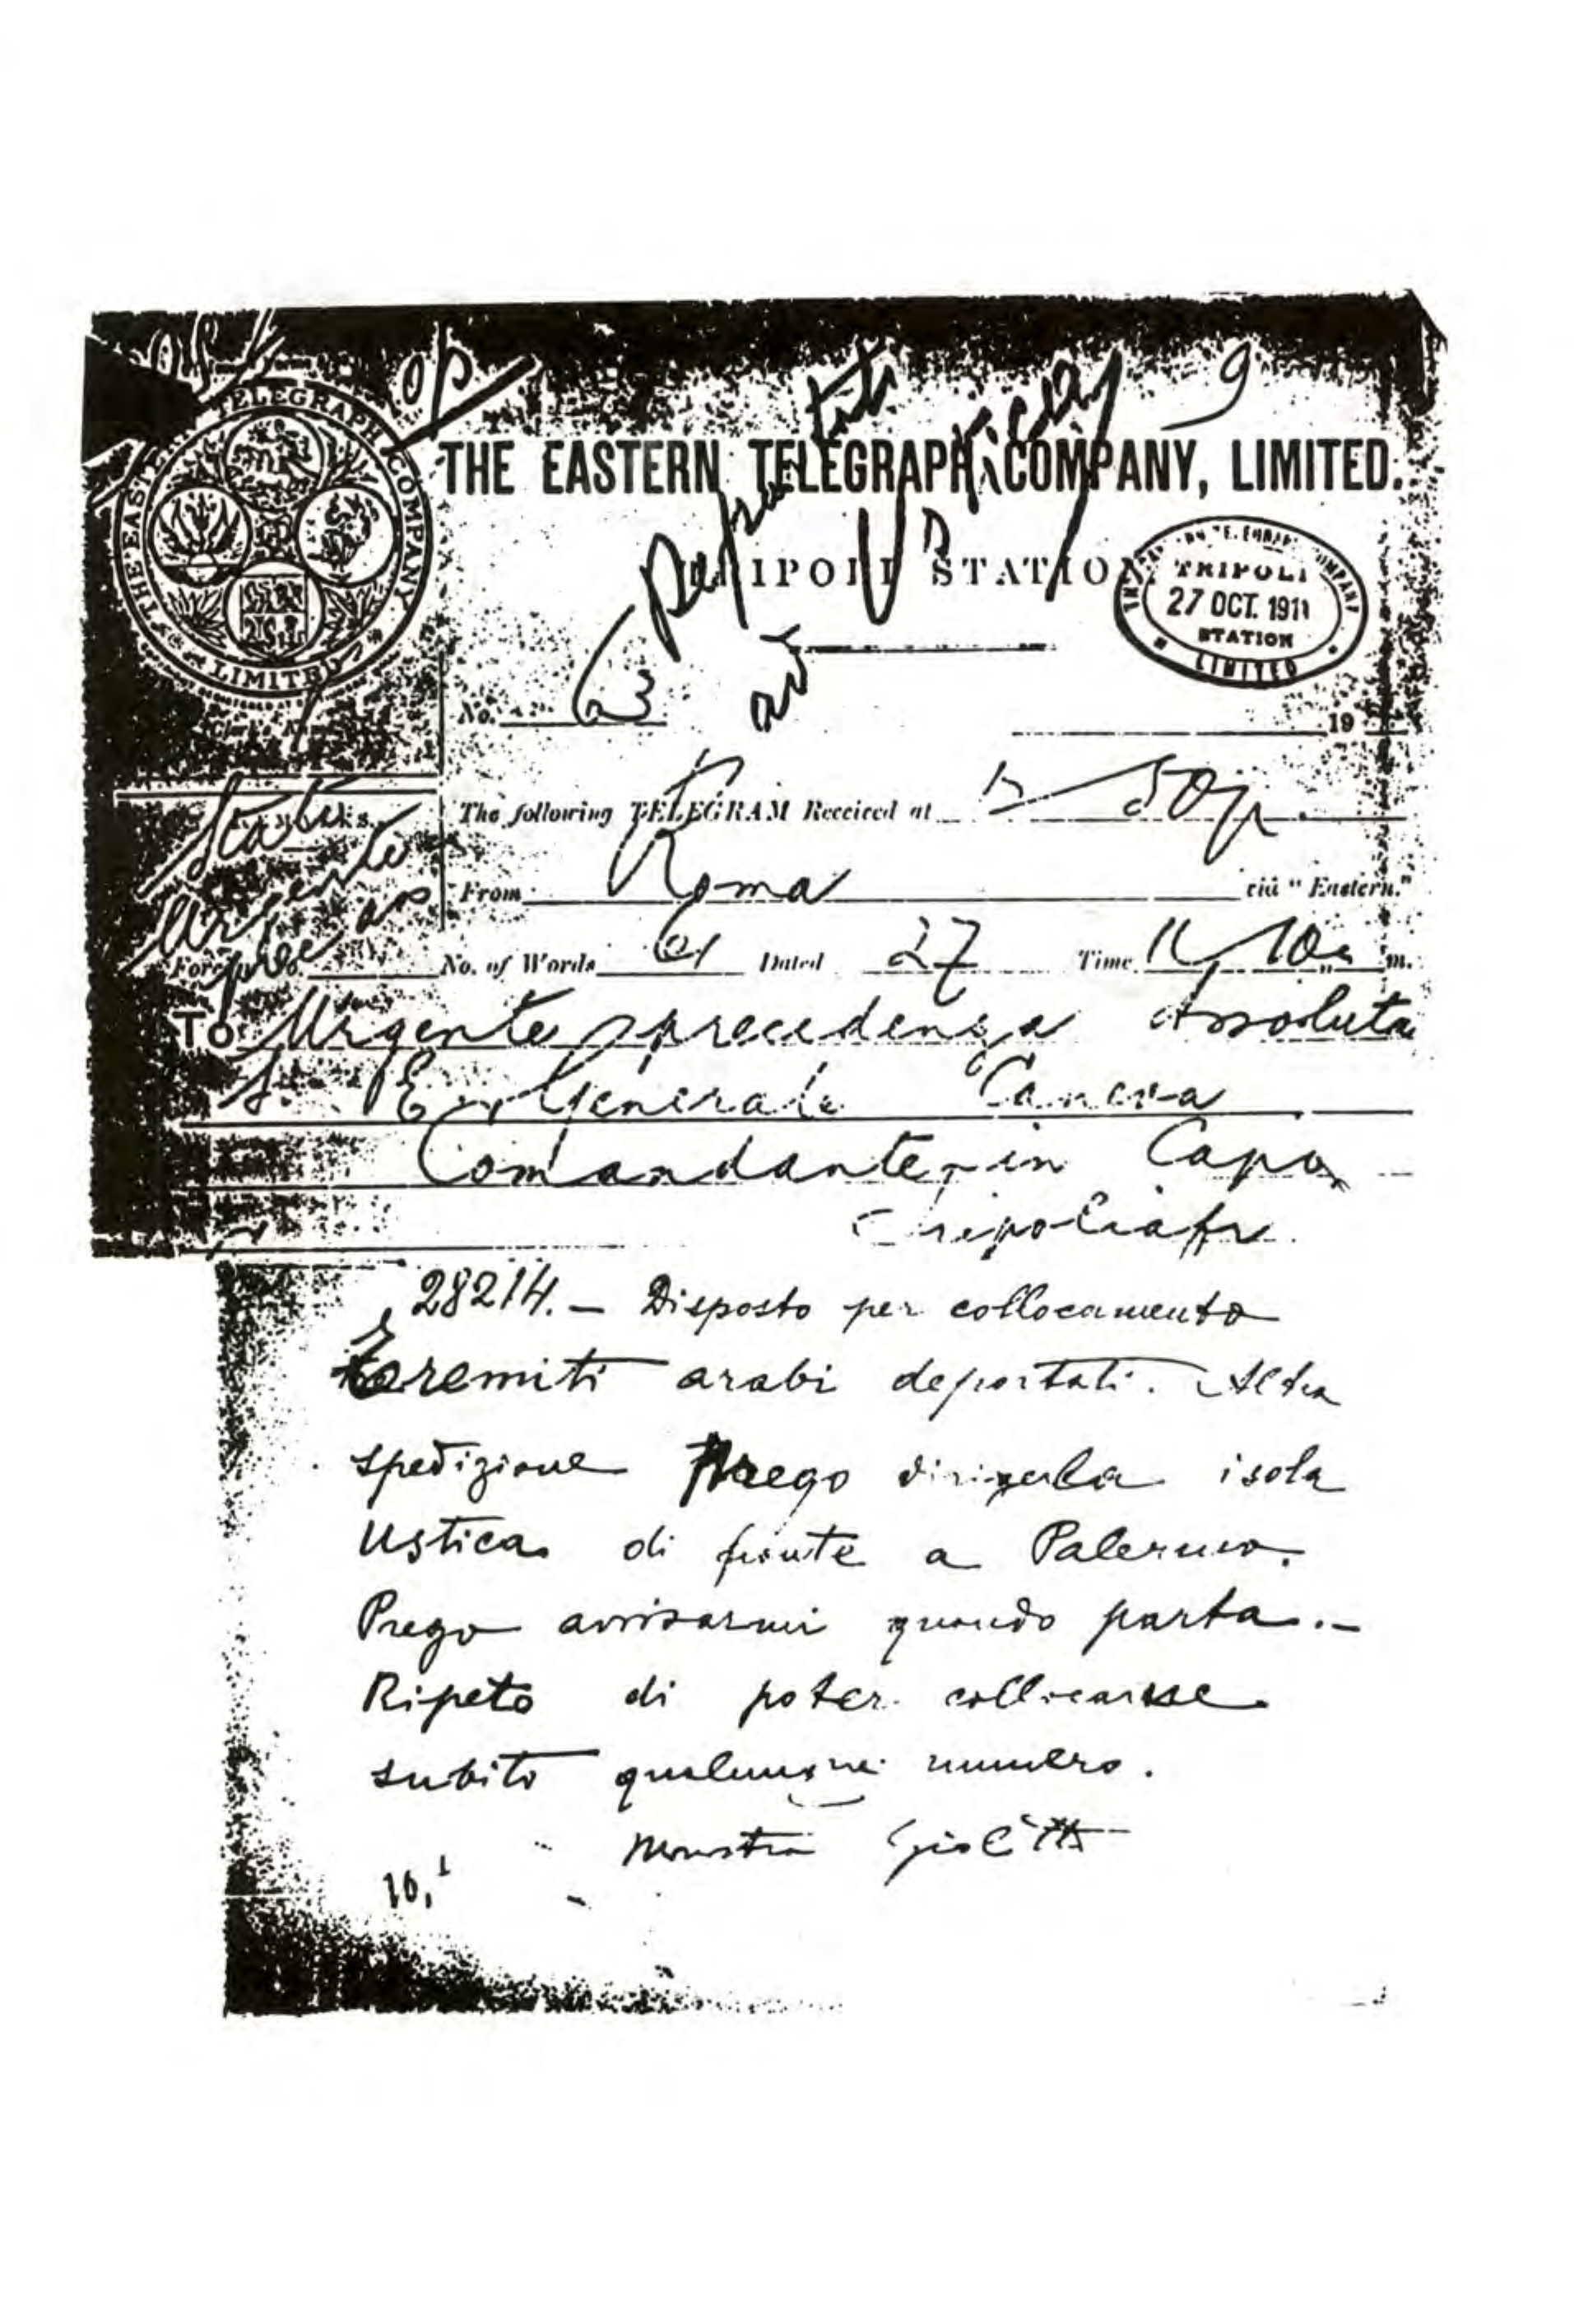 THE EASTERN TELEGRAPH COMPANY LIMITED
THE EASTERN TELEGRAPH COMPANY, LIMITED.
TRIPOLI STATION
TRIPOLI
27 OCT. 1911
STATION
LIMITED
No.
19
The following TELEGRAM Received at 50 p.
From Roma viâ "Eastern."
Urgente
No. of Words 61 Dated 27 Time 11 10 m.
To Urgente precedenza Assoluta
S. E. Generale Caneva
Comandante in Capo
Tripoliafr
28214. — Disposto per collocamento
tremiti arabi deportati. Altra
spedizione Prego dirigerla isola
Ustica di fronte a Palermo.
Prego avvisarmi quando parta. —
Ripeto di poter collocarne
subito qualunque numero.
Ministro Giolitti
10,